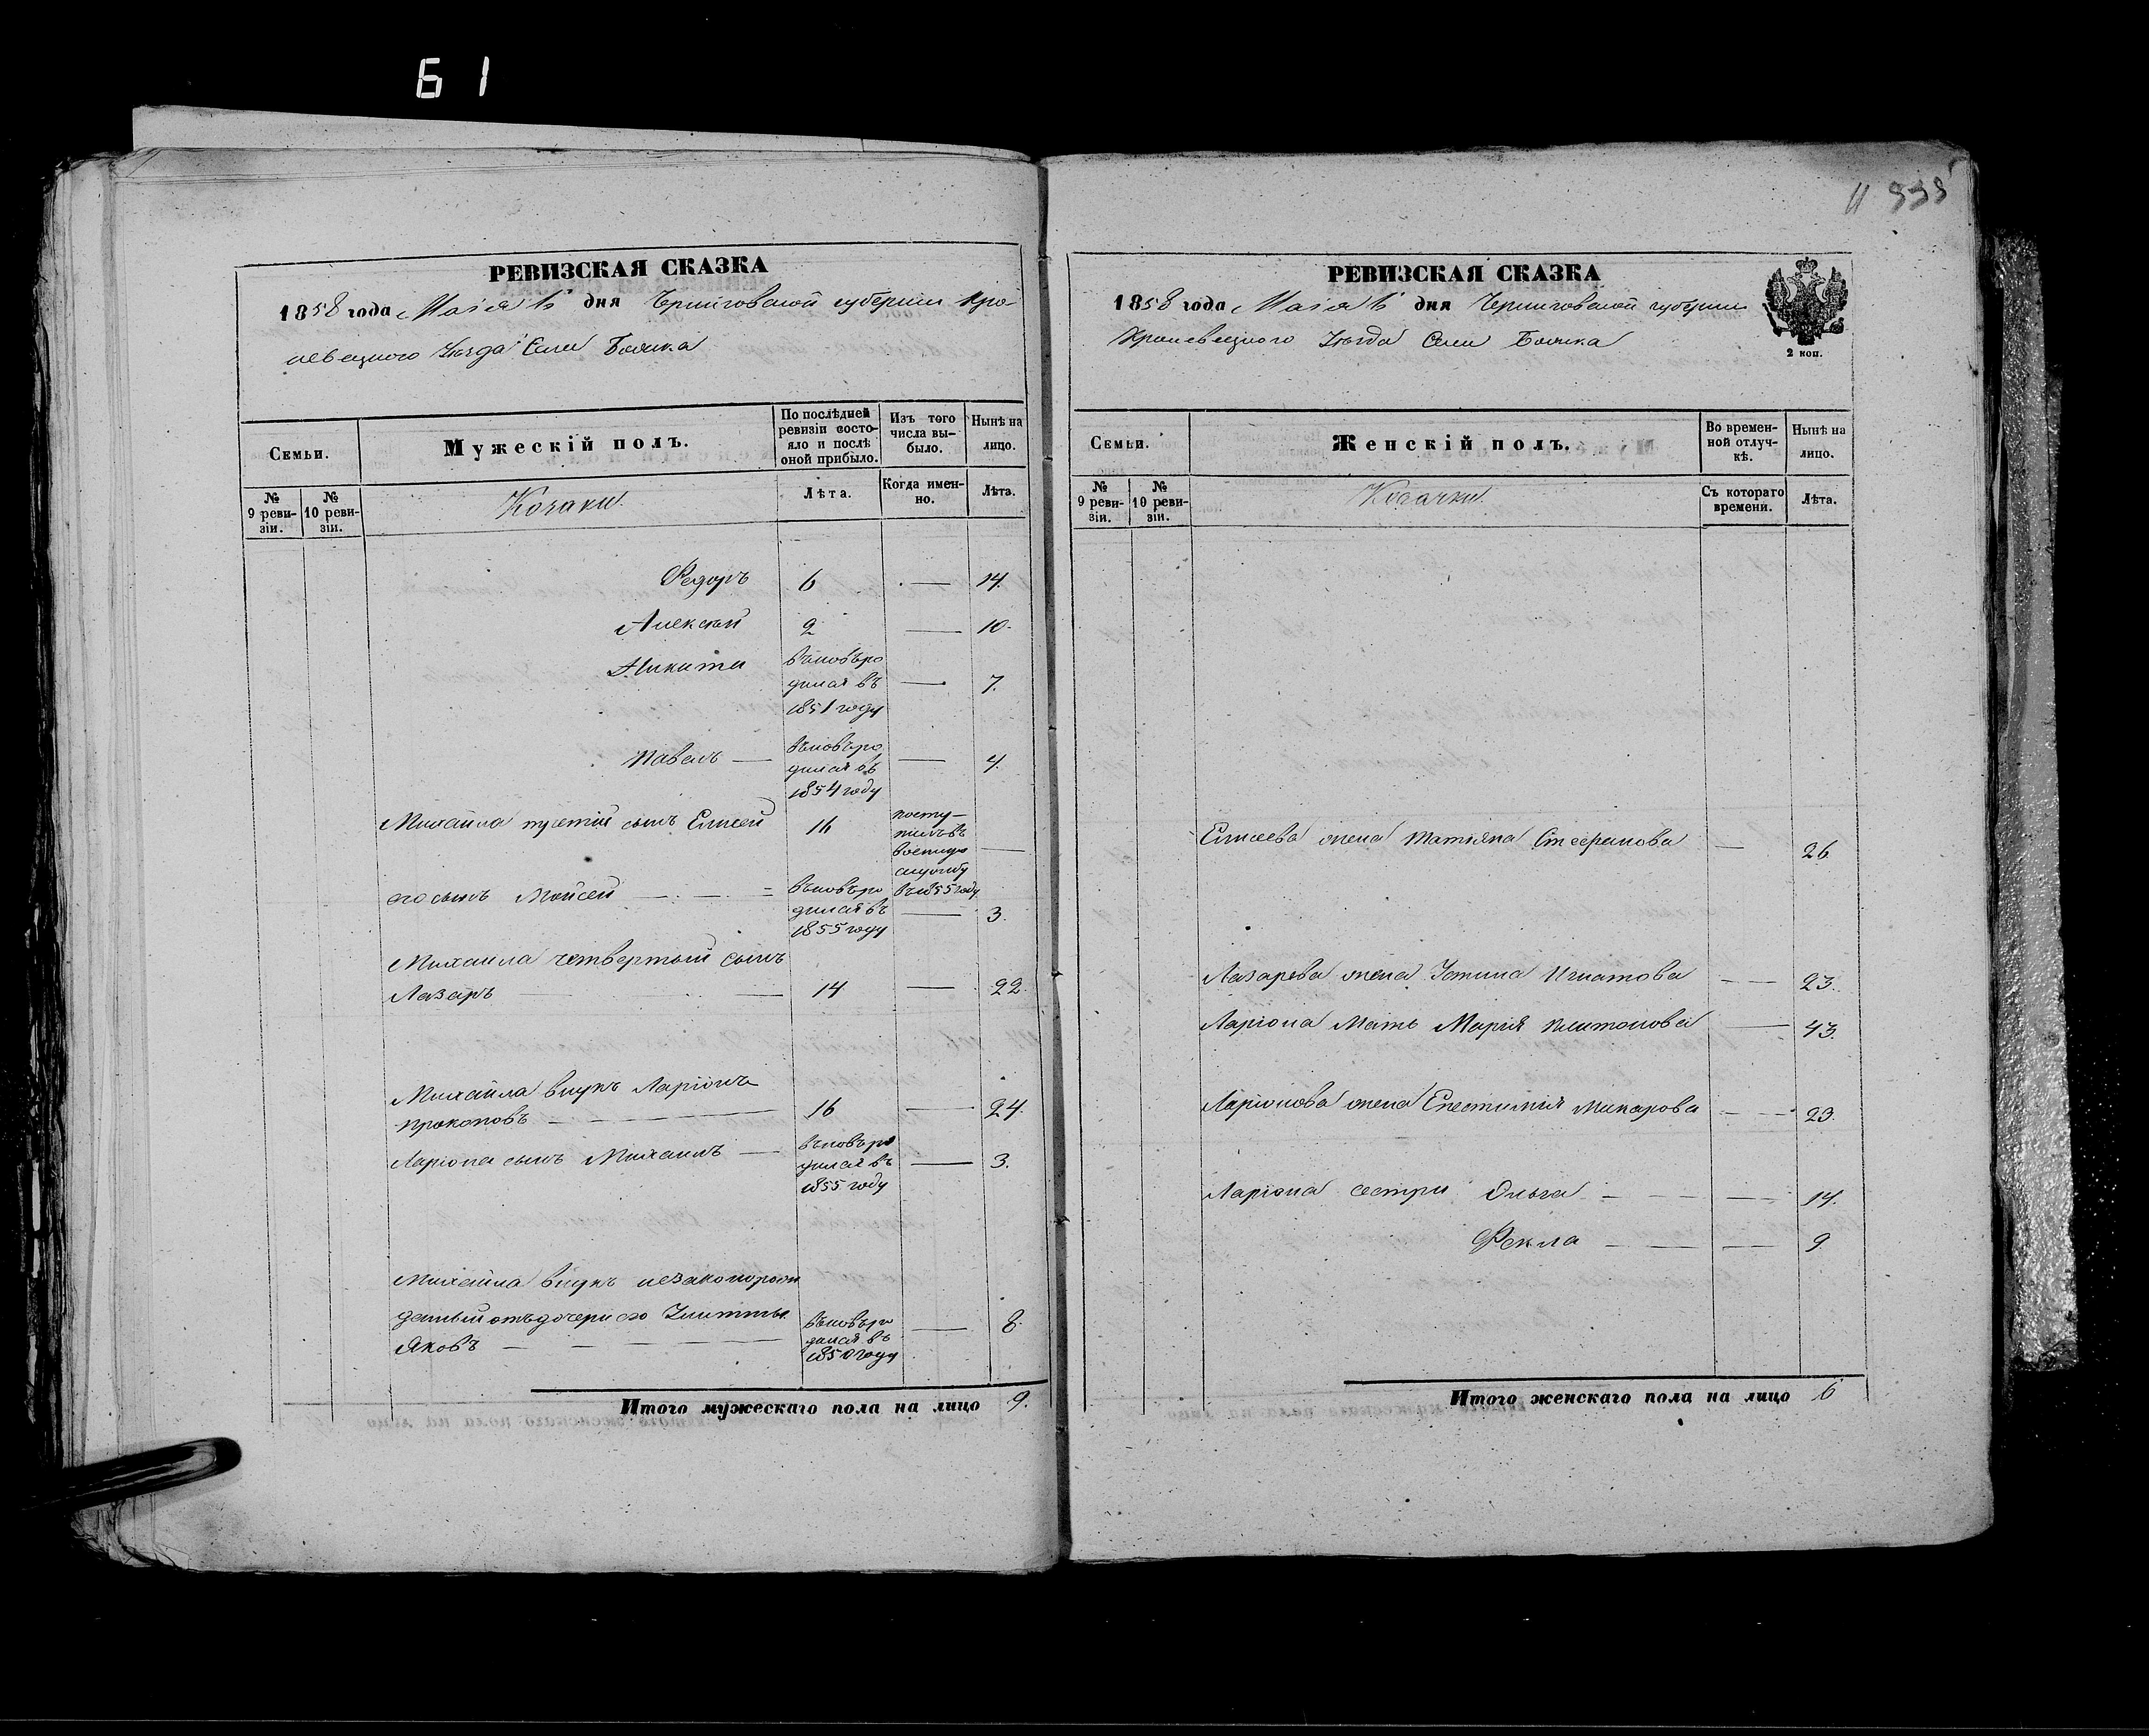 61
РЕВИЗСКАЯ СКАЗКА
1858 года Маія дня Черниговской губерніи Кро-
левецкого Уезда Села
Семьи.
Мужескій полъ.
По послѣдней ревизіи состо-яло и послѣ оной прибыло.
Изъ того числа вы-было.
Нынѣ на лицо.
№ 9 реви-зіи.
№ 10 реви-зіи.
Козаки
Лѣта.
Когда имен-но.
Лѣта.
Федоръ 6 — 14.
Алексѣй 2 — 10.
Никита
вновь ро
дился въ — 7.
1851 году
Павелъ —
вновь ро
дился въ — 4.
1854 году
Михайла третій сынъ Елисей 16
посту-
пилъ въ
военную —
службу
въ 1855 году
его сынъ Мойсей — — =
вновь ро
дился въ — 3.
1855 году
Михаила четвертый сынъ
Лазаръ — — 14 — 22.
Михайла внукъ Ларіонъ
Прокоповъ — 16 — 24.
Ларіона сынъ Михаилъ —
вновь ро
дился въ — 3.
1855 году
Михайла внукъ незаконорож
денный отъ дочери его
Яковъ — — —
вновь ро
дился въ — 8
1850 году
Итого мужескаго пола на лицо 9.
РЕВИЗСКАЯ СКАЗКА
1858 года Маія дня Черниговской губерніи
Кролевецкого Уезда Села
2 коп.
Семьи.
Женскій полъ.
Во времен-ной отлуч-кѣ.
Нынѣ на лицо.
№ 9 реви-зіи.
№ 10 реви-зіи.
Козачки
Съ котораго времени.
Лѣта.
Елисеева жена Татіяна Стефанова — 26
Лазарева жена Устина Игнатова — — 23.
Ларіона Мать Марія Платонова — 43.
Ларіонова жена Макарова — — 23.
Ларіона сестры Ольга — — — 14.
Фекла — — — 9
Итого женскаго пола на лицо 6